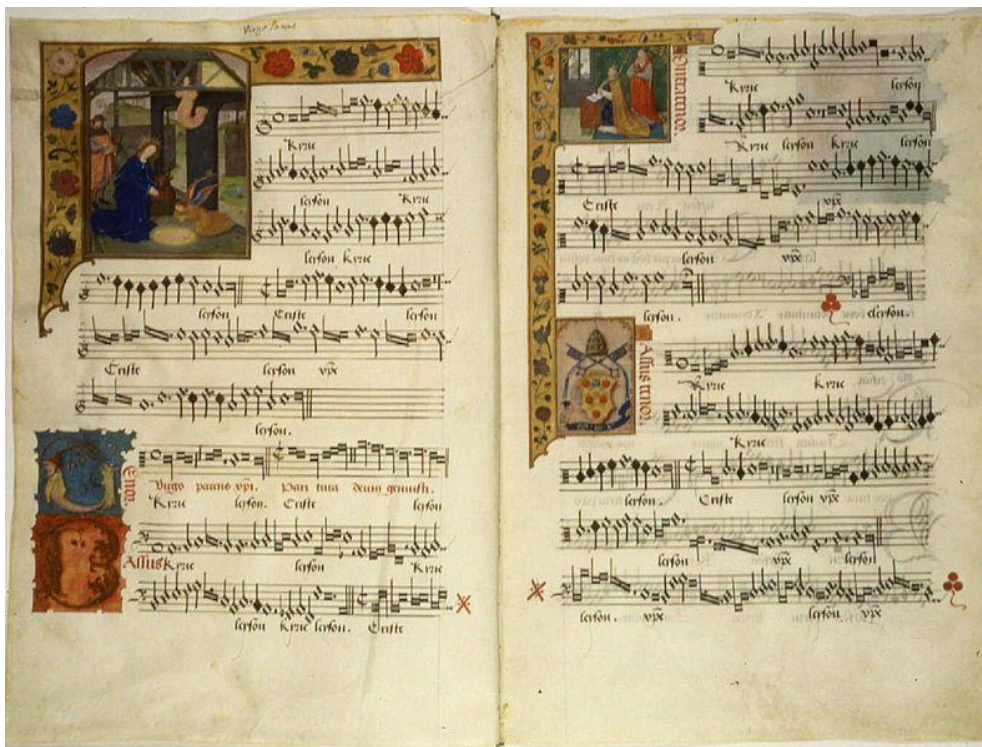 Virgo parens
Kyrie
leyson Kyrie
leyson kyrie
leyson Criste leyson
Criste leyson xpe
leyson.
Tenor.
Virgo parens xpi. Pari tura deum genuisti.
Kyrie leyson. Criste leyson
Bassus Kyrie leyson Kyrie
leyson kyrie leyson. Criste
Contratenor.
Kyrie leyson
Kyrie leyson kyrie leyson
Criste xpe
leyson xpe
leyson. eleyson.
Altus tenor.
Kyrie Kyrie
Kyrie
leyson Criste leyson xpe
leyson xpe leyson
leyson. xpe leyson xpe